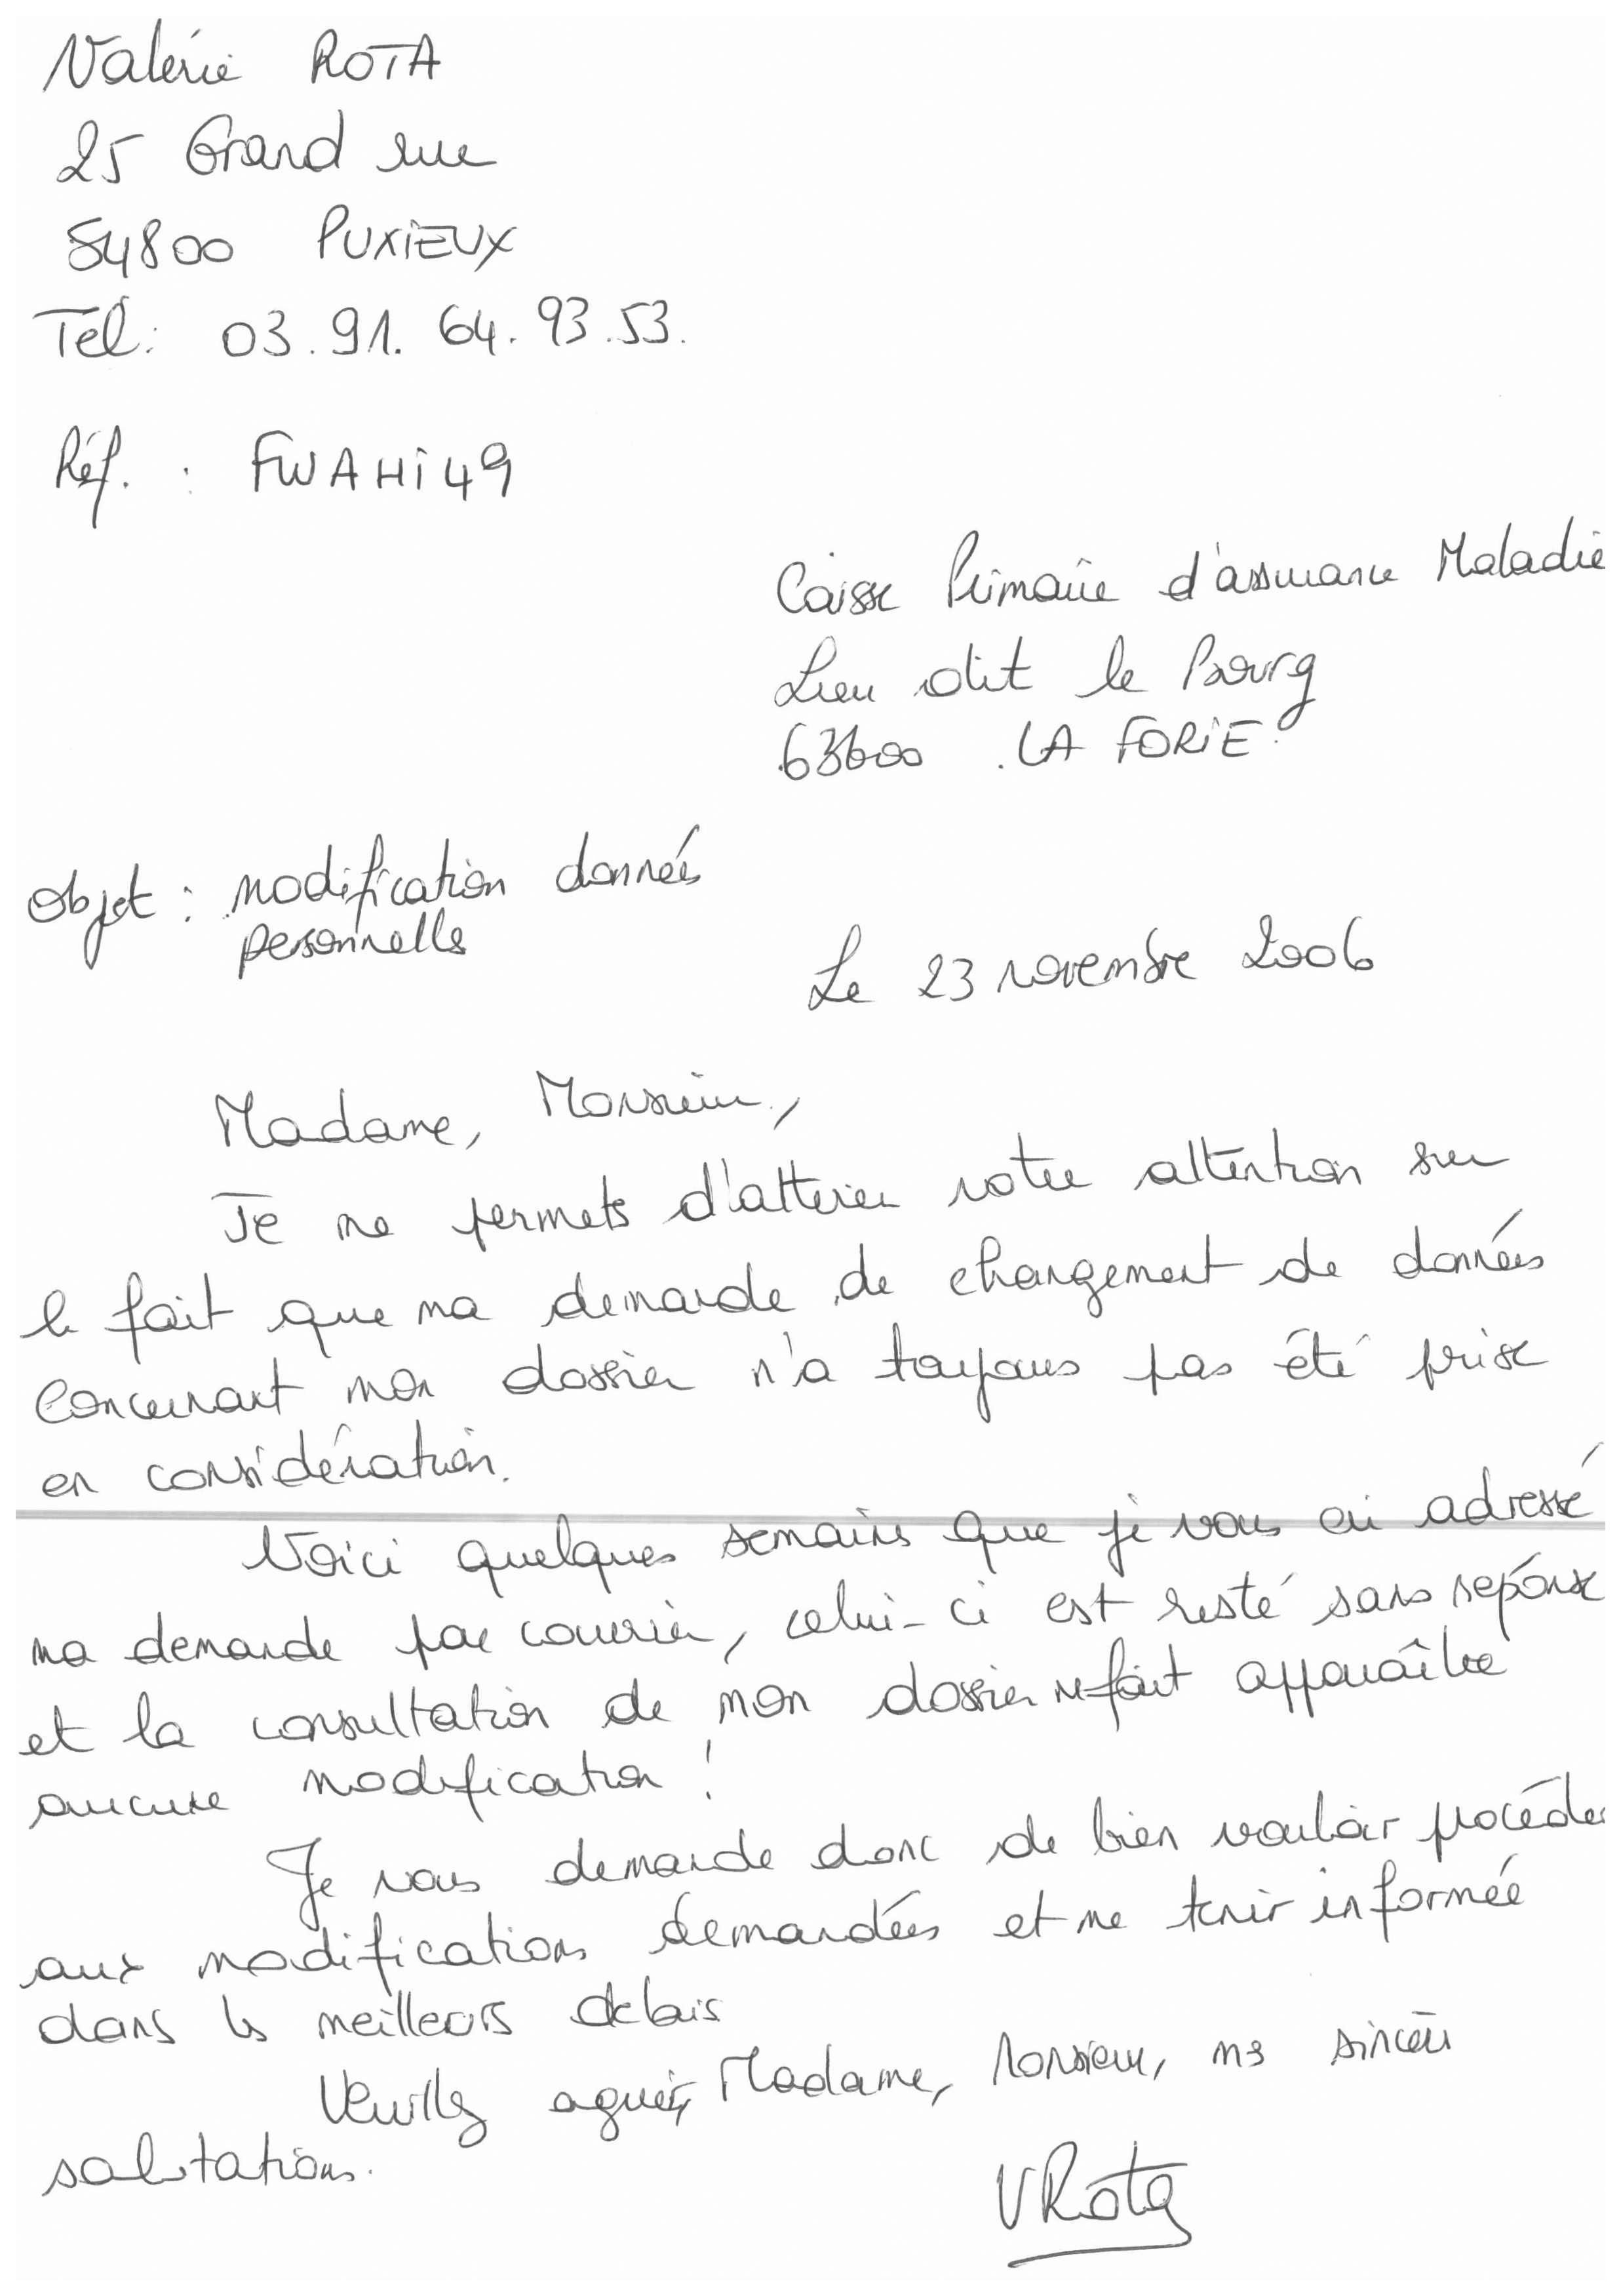 Valérie ROTA
25 Grand rue
54800 PUXIEUX
Tél : 03.91.64.93.53.
Réf. : FWAHi49
Caisse Primaire d'assurance Maladie
Lieu dit le Bourg
63600 LA FORiE
Objet : modification données
personnelles
Le 23 novembre 2006
Madame, Monsieur,
Je me permets d'attirer votre attention sur
le fait que ma demande de changement de données
concernant mon dossier n'a toujours pas été prise
en considération.
Voici quelques semaines que je vous ai adressé
ma demande par courrier, celui-ci est resté sans réponse
et la consultation de mon dossier ne fait apparaître
aucune modification !
Je vous demande donc de bien vouloir procéder
aux modifications demandées et me tenir informée
dans les meilleurs délais
Veuillez agréer, Madame, Monsieur, mes sincères
salutations.
VRota